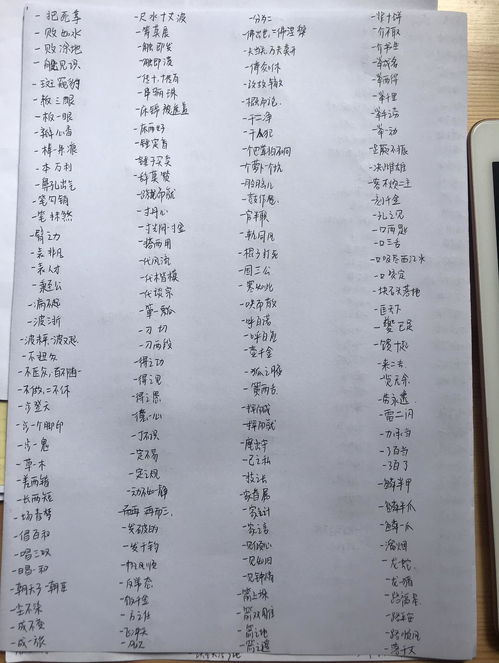 一犯再辱
一败如水
一败涂地
一般见识
一斑窥豹
一板三眼
一板一眼
一瓣心香
一本万利
一鼻孔出气
一笔勾销
一笔抹煞
一臂之力
一表非凡
一表人才
一秉至公
一病不起
一波三折
一不做，二不休
一步登天
一步一个脚印
一步一鬼
一草一木
一差两错
一长两短
一场春梦
一倡百和
一唱三叹
一唱一和
一朝天子一朝臣
一尘不染
一成不变
一成一旅
一尺水十丈波
一筹莫展
一触即发
一触即溃
一床锦被遮盖
一床两好
一锤定音
一锤子买卖
一寸丹心
一寸光阴一寸金
一搭两用
一代风流
一代楷模
一代谈宗
一刀一切
一刀两段
一得之功
一得之见
一得之愚
一丁不识
一定不易
一定之规
一动不如一静
一而再，再而三
一发破的
一发千钧
一帆风顺
一反常态
一饭千金
一方之任
一飞冲天
一分为二
一佛出世，二佛涅槃
一夫当关，万夫莫开
一傅众咻
一改故辙
一概而论
一干二净
一干人犯
一个巴掌拍不响
一个萝卜一个坑
一股脑儿
一鼓作气
一官半职
一轨同风
一棍子打死
一国三公
一哄而散
一呼百诺
一呼百应
一壶千金
一狐之腋
一挥而就
一己之私
一技之长
一家之言
一见倾心
一见如故
一见钟情
一箭上垛
一箭双雕
一箭之地
一箭之遥
一介不取
一介书生
一举成名
一举两得
一举千里
一举一动
一蹶不振
一决雌雄
一客不烦二主
一刻千金
一孔之见
一口三舌
一口吸尽西江水
一口咬定
一块石头落地
一匡天下
一夔已足
一馈十起
一来二去
一览无余
一劳永逸
一雷二闪
一了百当
一了百了
一鳞半甲
一鳞半爪
一鳞一爪
一溜烟
一龙一蛇
一龙一猪
一路福星
一路平安
一路顺风